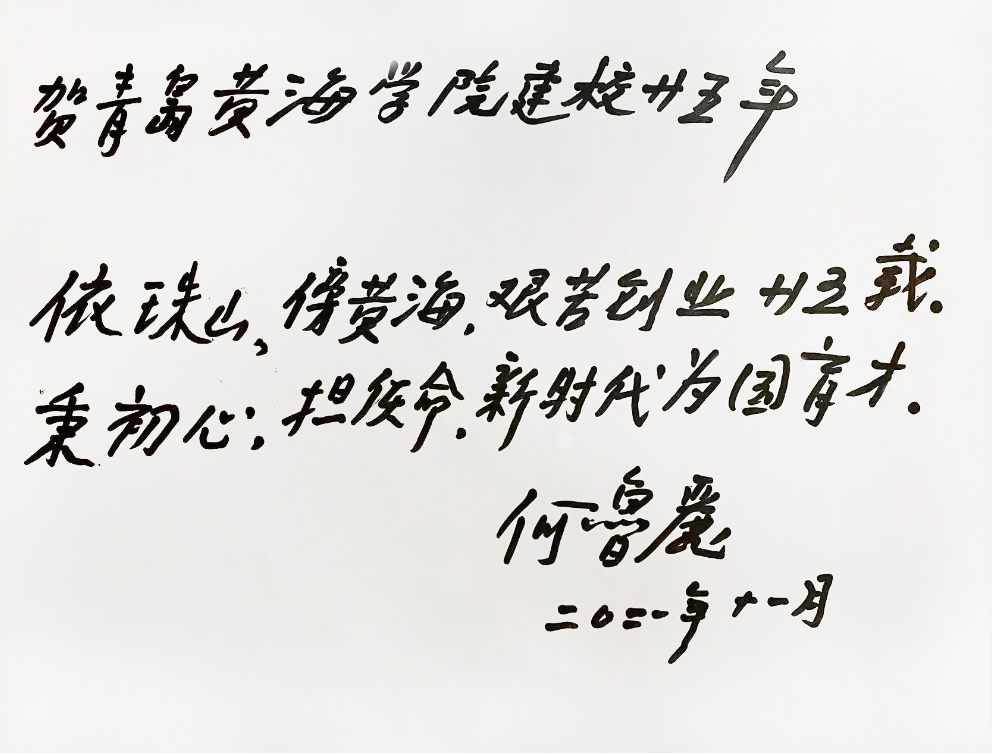 贺青岛黄海学院建校廿五年
依珠山，傍黄海，艰苦创业廿五载。
秉初心，担使命，新时代为国育才。
何鲁麗
二〇二一年十一月